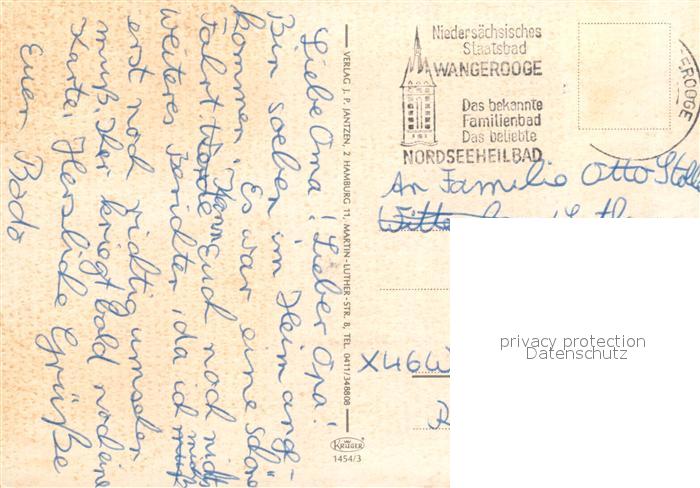 Liebe Oma! Lieber Opa!
Bin soeben im Heim ange-
kommen. Es war eine schöne
Fahrt. Kann Euch noch nichts
weiteres berichten, da ich mich
erst noch richtig umsehen
muß. Ihr kriegt bald noch eine
Karte. Herzliche Grüße
Euer Bodo
VERLAG J. P. JANTZEN, 2 HAMBURG 11, MARTIN-LUTHER-STR. 8, TEL. 0411/348808
KRÜGER
1454/3
Niedersächsisches
Staatsbad
WANGEROOGE
Das bekannte
Familienbad
Das beliebte
NORDSEEHEILBAD
EROOGE
An Familie Otto
X46W
privacy protection
Datenschutz